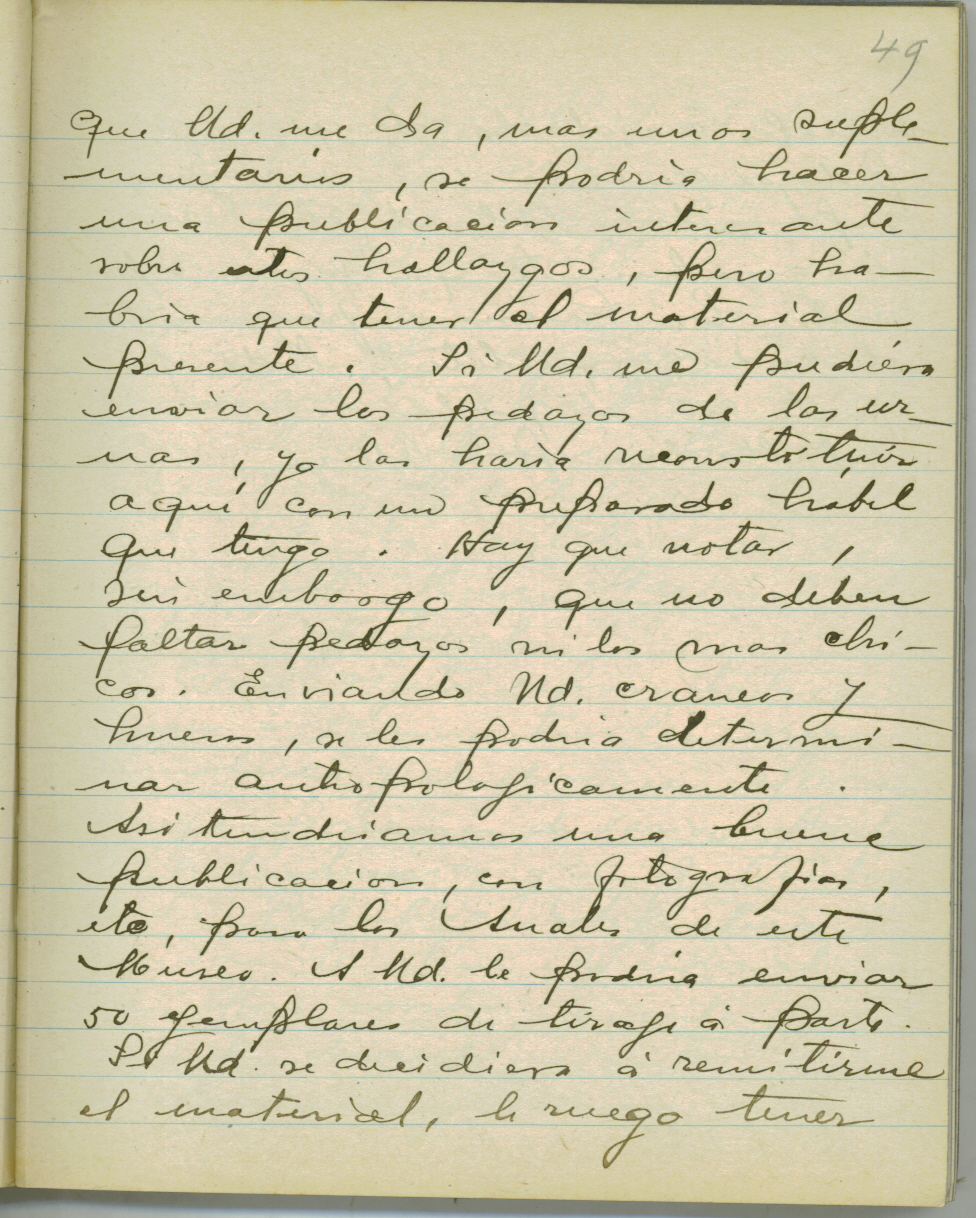 49
que Ud. me da, mas unos suple-
mentarios, se podria hacer
una publicacion interesante
sobre estos hallazgos, pero ha-
bria que tener el material
presente. Si Ud. me pudiera
enviar los pedazos de las ur-
nas, yo las haria reconstituir
aqui con un preparado habil
que tengo. Hay que notar,
sin embargo, que no deben
faltar pedazos ni los mas chi-
cos. Enviando Ud. craneos y
huesos, se les podria determi-
nar antropologicamente.
Asi tendriamos una buena
publicacion, con fotografias,
etc, para los Anales de este
Museo. A Ud. le podria enviar
50 ejemplares de tirage á parte.
Si Ud. se decidiera á remitirme
el material, le ruego tener